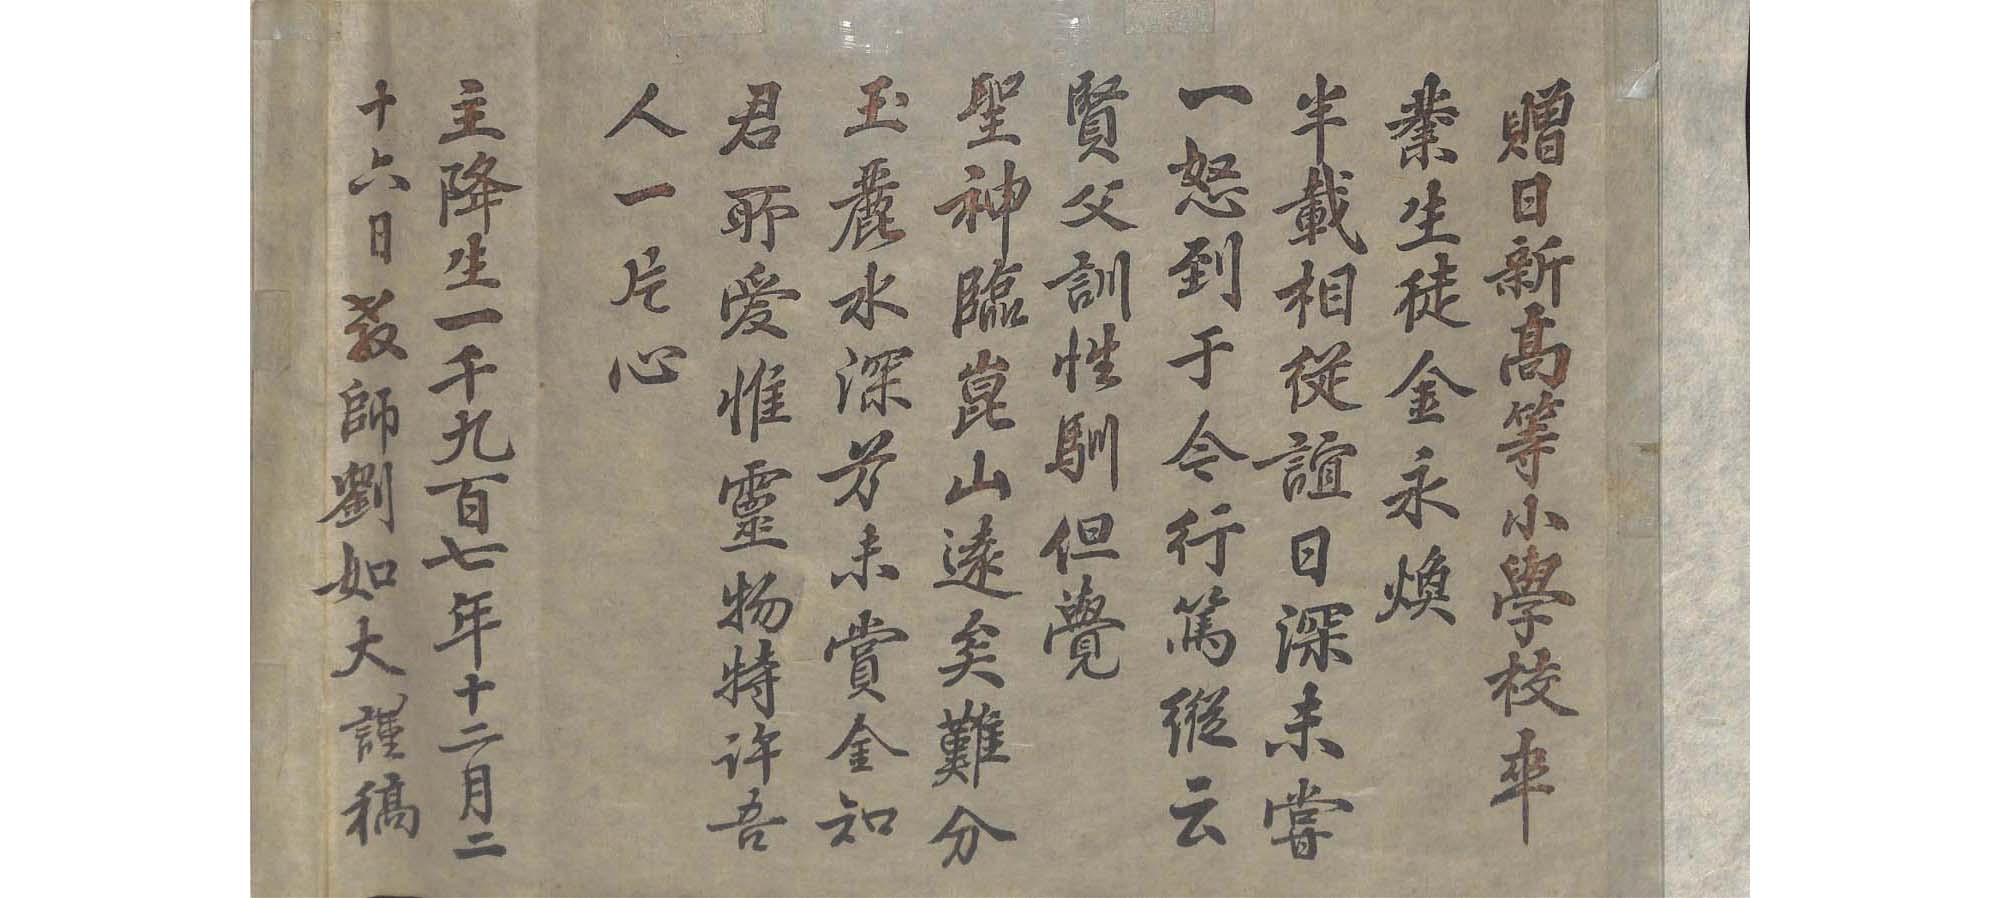 贈日新高等小學校卒
業生徒金永煥
半載相從誼日深未嘗
一怒到于今行篤縱云
賢父訓性馴但覺
聖神臨崑山遠矣難分
玉麗水深兮未賞金知
君所愛惟靈物特許吾
人一片心
主降生一千九百七年十二月二
十六日敎師劉如大謹稿